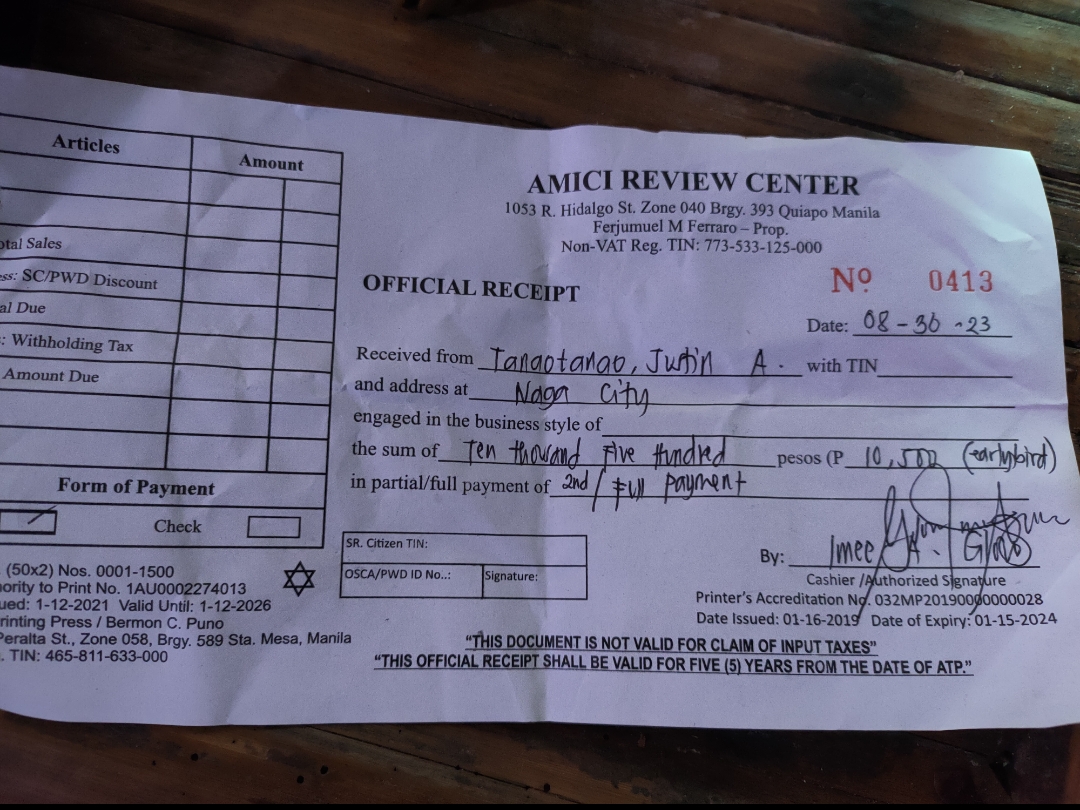 Articles Amount
otal Sales
ess: SC/PWD Discount
al Due
: Withholding Tax
Amount Due
Form of Payment
Check
(50x2) Nos. 0001-1500
ority to Print No. 1AU0002274013
ued: 1-12-2021 Valid Until: 1-12-2026
rinting Press / Bermon C. Puno
Peralta St., Zone 058, Brgy. 589 Sta. Mesa, Manila
. TIN: 465-811-633-000
AMICI REVIEW CENTER
1053 R. Hidalgo St. Zone 040 Brgy. 393 Quiapo Manila
Ferjumuel M Ferraro – Prop.
Non-VAT Reg. TIN: 773-533-125-000
OFFICIAL RECEIPT Nº 0413
Date: 08-30-23
Received from Tangotango, Justin A. with TIN
and address at Naga City
engaged in the business style of
the sum of Ten thousand Five Hundred pesos (P 10,500 (earlybird)
in partial/full payment of 2nd/Full payment
SR. Citizen TIN:
OSCA/PWD ID No..: Signature:
By: Imee A.
Cashier /Authorized Signature
Printer's Accreditation No. 032MP20190000000028
Date Issued: 01-16-2019 Date of Expiry: 01-15-2024
"THIS DOCUMENT IS NOT VALID FOR CLAIM OF INPUT TAXES"
"THIS OFFICIAL RECEIPT SHALL BE VALID FOR FIVE (5) YEARS FROM THE DATE OF ATP."